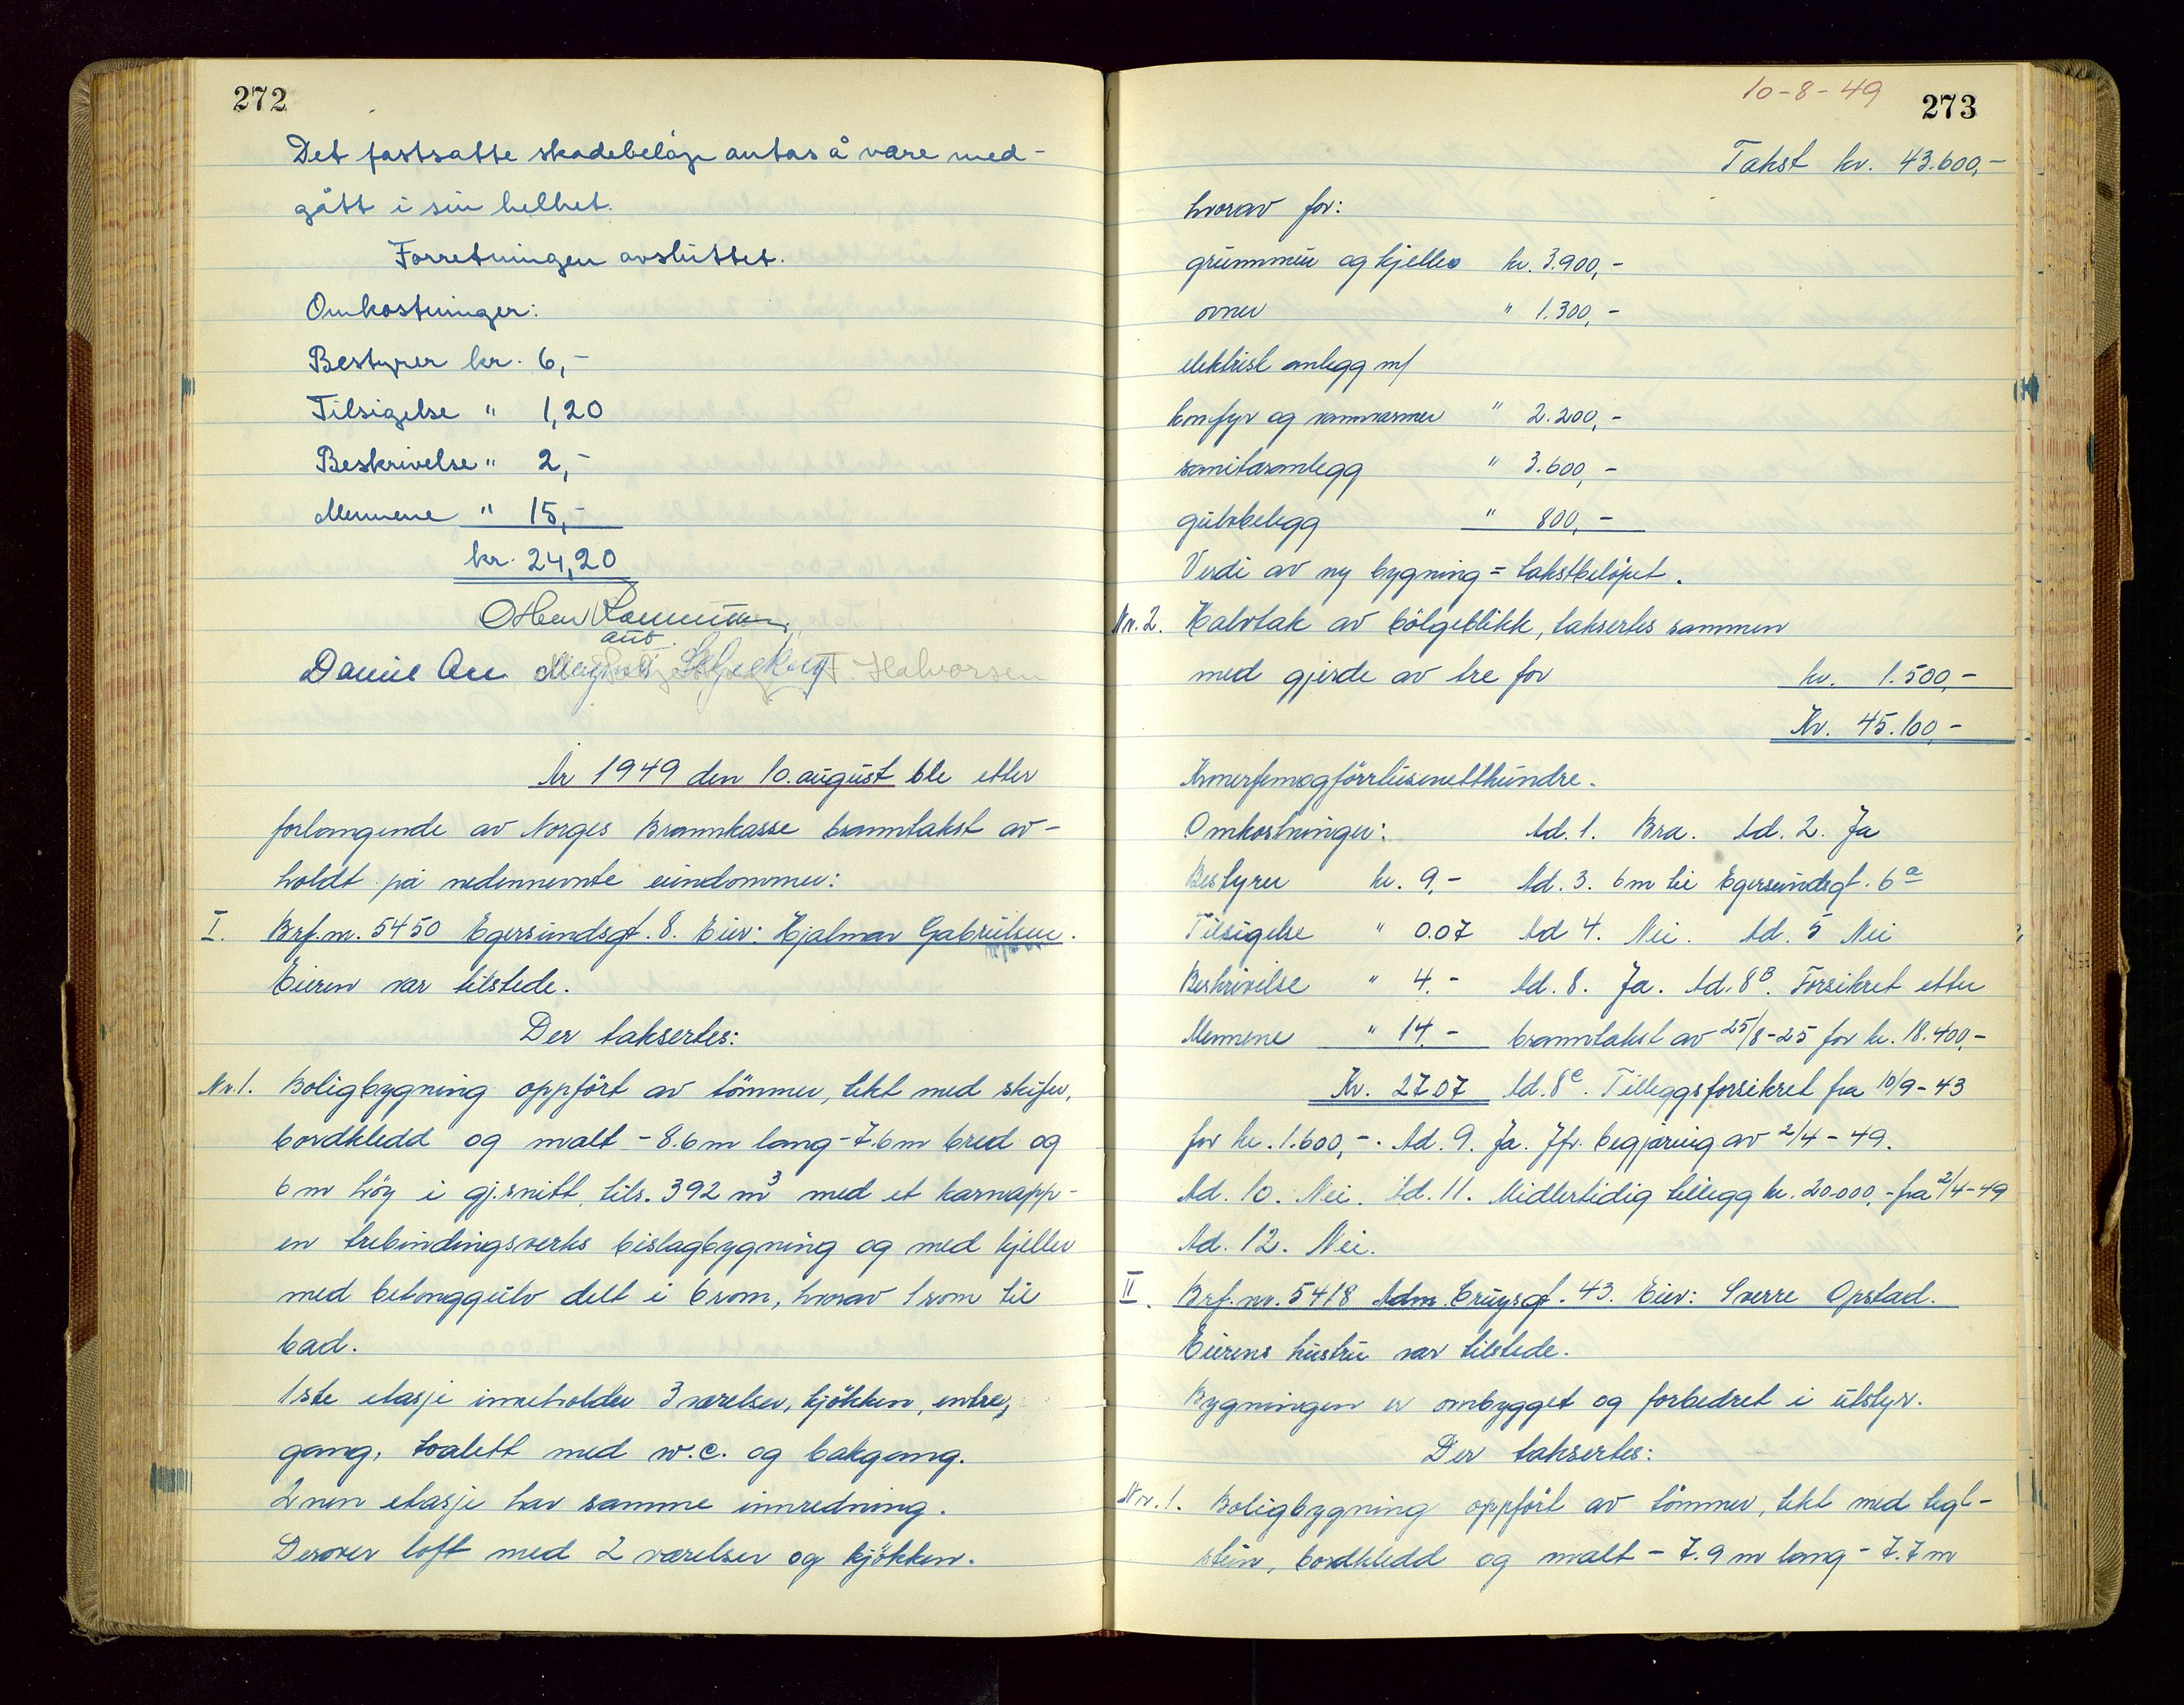 272
Det fastsatte skadebeløp antas å være med-
gått i sin helhet.
Forretningen avsluttet.
Omkostninger:
Bestyrer kr. 6,-
Tilsigelse " 1,20
Beskrivelse " 2,-
Mennene " 15,-
kr. 24,20
aut.
Halvorsen
År 1949 den 10. august ble etter
forlangende av Norges Brannkasse branntakst av-
holdt på nedennevnte eiendommer:
I. Brf.nr. 5450 Egersundsgt. 8. Eier: Hjalmar Gabrielsen.
Eieren var tilstede.
Der taksertes:
Nr.1. Boligbygning oppført av tömmer, tekt med skifer,
bordkledd og malt - 8.6 m lang - 7.6 m bred og
6 m höy i gj.snitt, tils. 392 m³ med et karnapp-
en trebindingsverks bislagbygning og med kjeller
med betonggulv delt i 6 rom, hvorav 1 rom til
bad.
1ste etasje inneholder 3 værelser, kjökken, entre,
gang, toalett med w.c. og bakgang.
2nen etasje har samme innredning.
Derover loft med 2 værelser og kjökken.
10-8-49
273
Takst kr. 43.600,-
hvorav for:
grunnmur og kjeller kr. 3.900,-
ovner " 1.300,-
elektrisk anlegg m/
komfyr og vannvarmer " 2.200,-
sanitæranlegg " 3.600,-
gulvbelegg " 800,-
Verdi av ny bygning = takstbelöpet.
Nr. 2. Halvtak av bölgeblikk, taksertes sammen
med gjerde av tre for kr. 1.500,-
Kr. 45.100,-
Kronerfemogförrtitusenetthundre.
Omkostninger: Ad. 1. Bra. Ad. 2. Ja
Bestyrer kr. 9,- Ad. 3. 6 m til Egersundsgt. 6a
Tilsigelse " 0.07 Ad 4. Nei. Ad. 5 Nei
Beskrivelse " 4.- Ad. 8. Ja. Ad. 8B. Forsikret etter
Mennene " 14.- branntakst av 25/8-25 for kr. 18.400,-
Kr. 27.07 Ad. 8c. Tilleggsforsikret fra 10/9-43
for kr. 1.600,-. Ad. 9. Ja. Jfr. begjæring av 2/4-49.
Ad. 10. Nei. Ad. 11. Midlertidig tillegg kr. 20.000,- fra 2/4-49
Ad. 12. Nei.
II. Brf.nr. 5418 Adm. Cruysgt. 43. Eier: Sverre Opstad.
Eierens hustru var tilstede.
Bygningen er ombygget og forbedret i utstyr.
Der taksertes:
Nr. 1. Boligbygning oppført av tömmer, tekt med tegl-
stein, bordkledd og malt - 7.9 m lang - 7.7 m